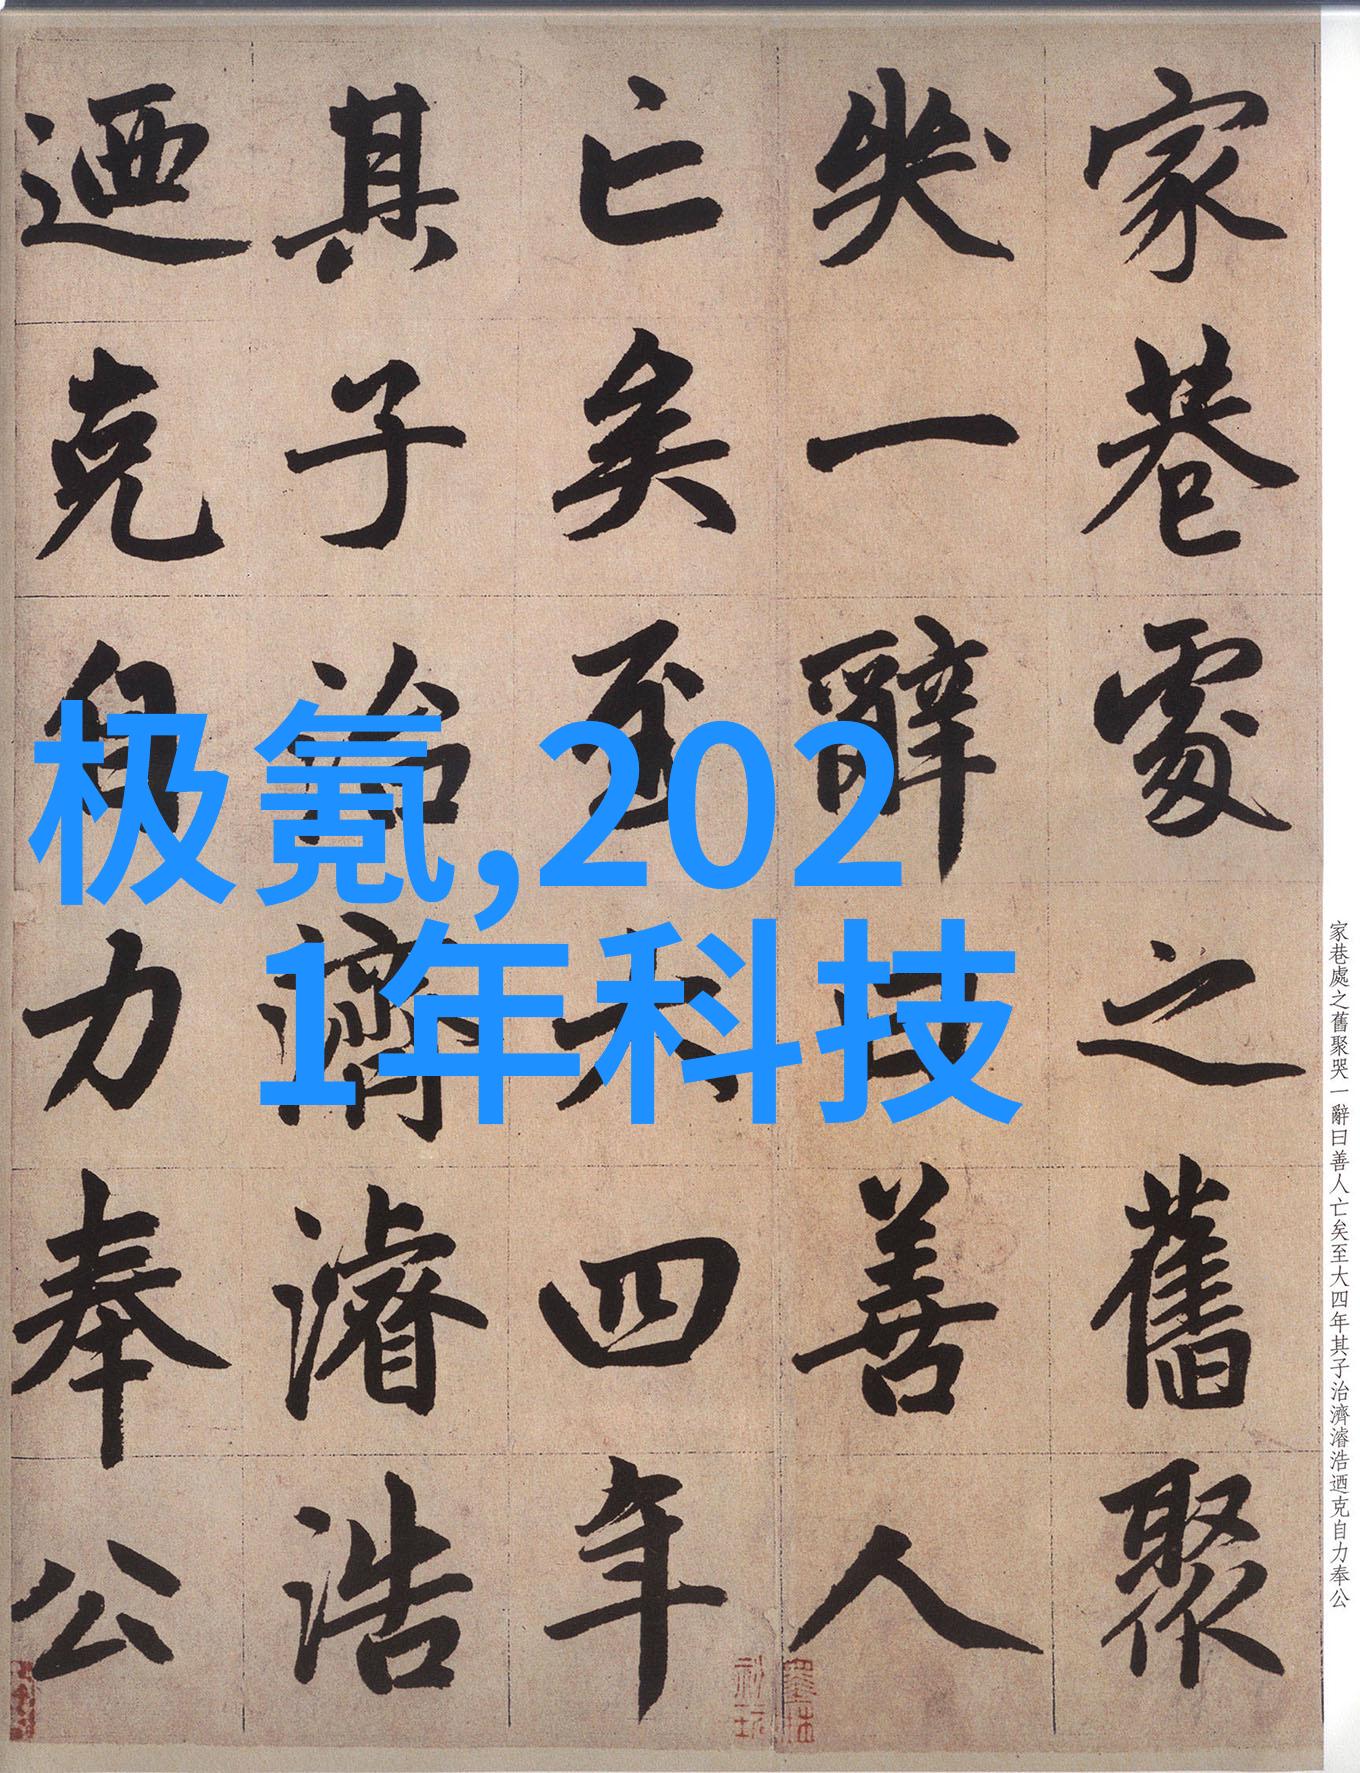 家巷處之舊聚
哭一辭曰善人
亡矣至大四年
其子治濟濬浩
迺克自力奉公
极氪,202
1年科技
家巷處之舊聚哭一辭曰善人亡矣至大四年其子治濟濬浩迺克自力奉公